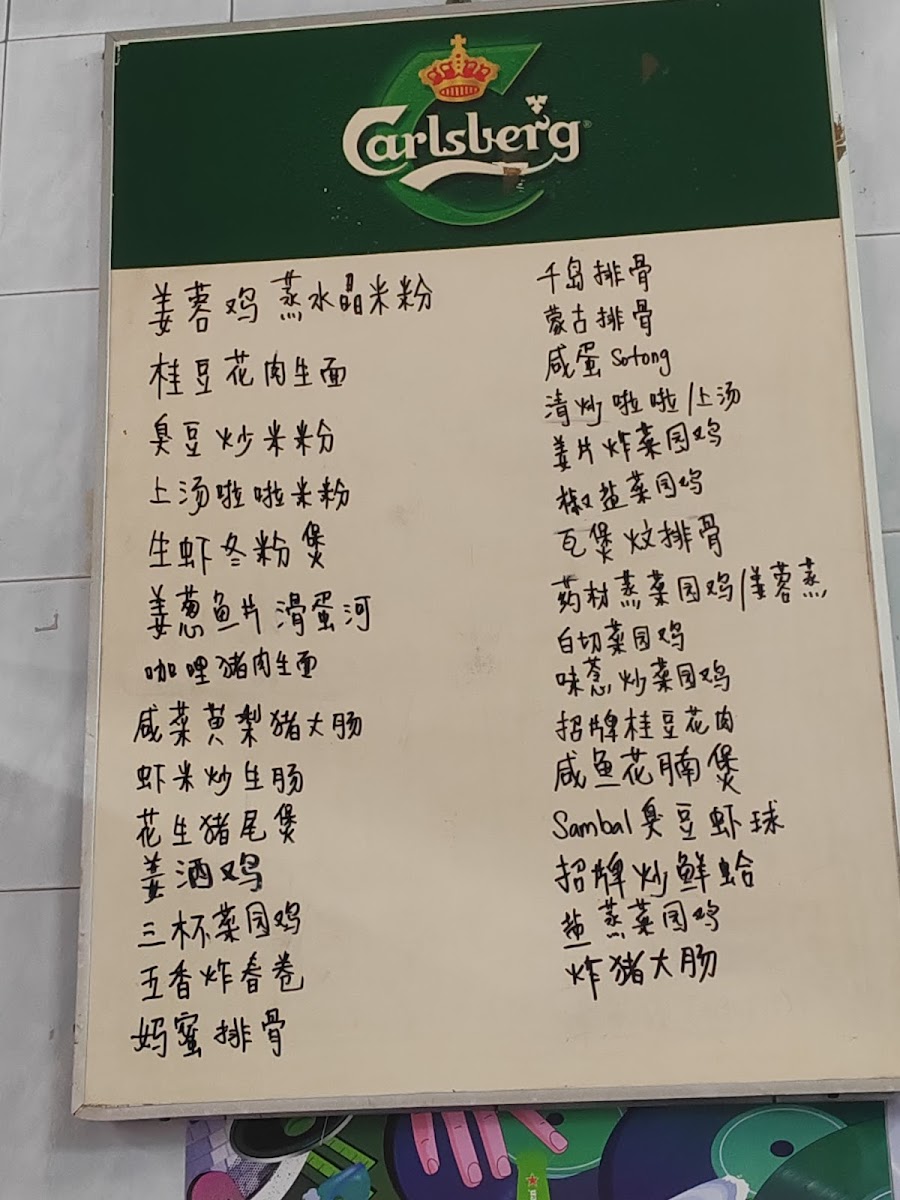 Carlsberg
姜蓉鸡蒸水晶米粉
桂豆花肉生面
臭豆炒米粉
上汤啦啦米粉
生虾冬粉煲
姜葱鱼片滑蛋河
咖哩猪肉生面
咸菜黄梨猪大肠
虾米炒生肠
花生猪尾煲
姜酒鸡
三杯菜园鸡
五香炸春卷
妈蜜排骨
千岛排骨
蒙古排骨
咸蛋 Sotong
清炒啦啦/上汤
姜片炸菜园鸡
椒盐菜园鸡
瓦煲炆排骨
药材蒸菜园鸡/姜蓉蒸
白切菜园鸡
味葱炒菜园鸡
招牌桂豆花肉
咸鱼花腩煲
Sambal 臭豆虾球
招牌炒鲜蛤
盐蒸菜园鸡
炸猪大肠